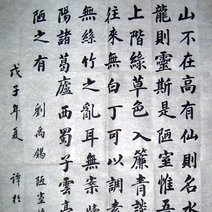 山不在高有仙則名水
龍則靈斯是陋室惟吾
上階綠草色入簾青談
往來無白丁可以調素
無絲竹之亂耳無案牘
陽諸葛廬西蜀子雲亭
陋之有 劉禹錫 陋室
戊子年夏 譚